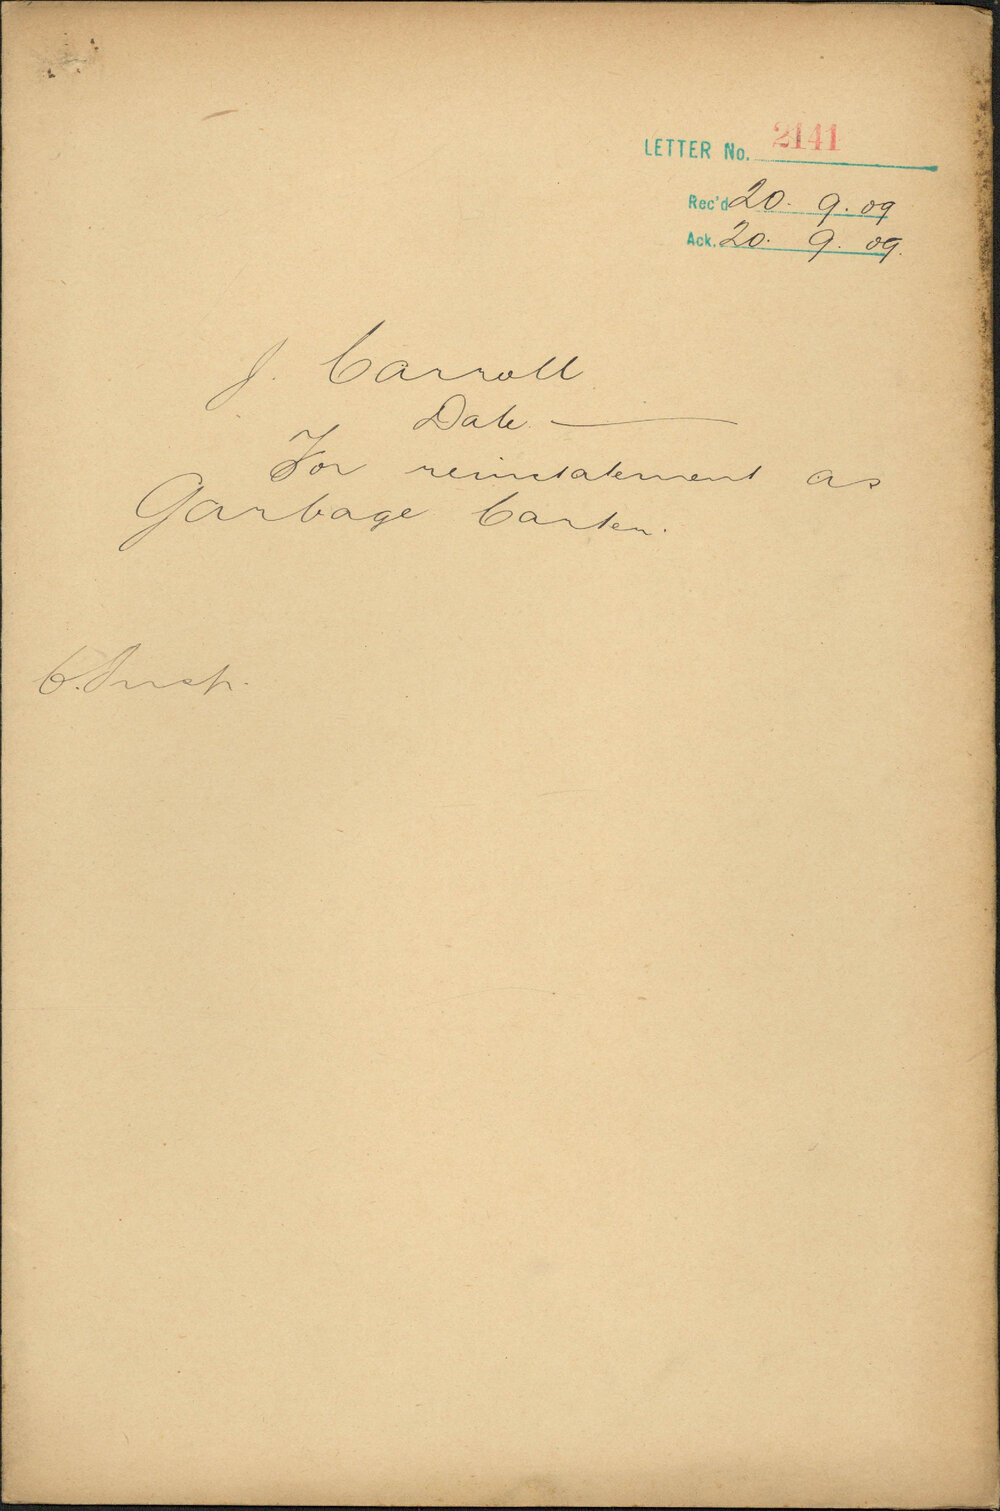 LETTER No. 2141
Rec'd 20. 9. 09
Ack. 20. 9. 09.
J. Carroll
Date —
For reinstatement as
Garbage Carter.
C. Insp.